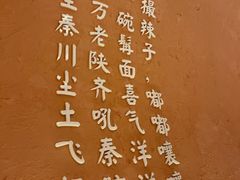 撮辣子，嘟嘟囔
碗面喜气洋洋
万老陕齐吼秦
秦川尘土飞